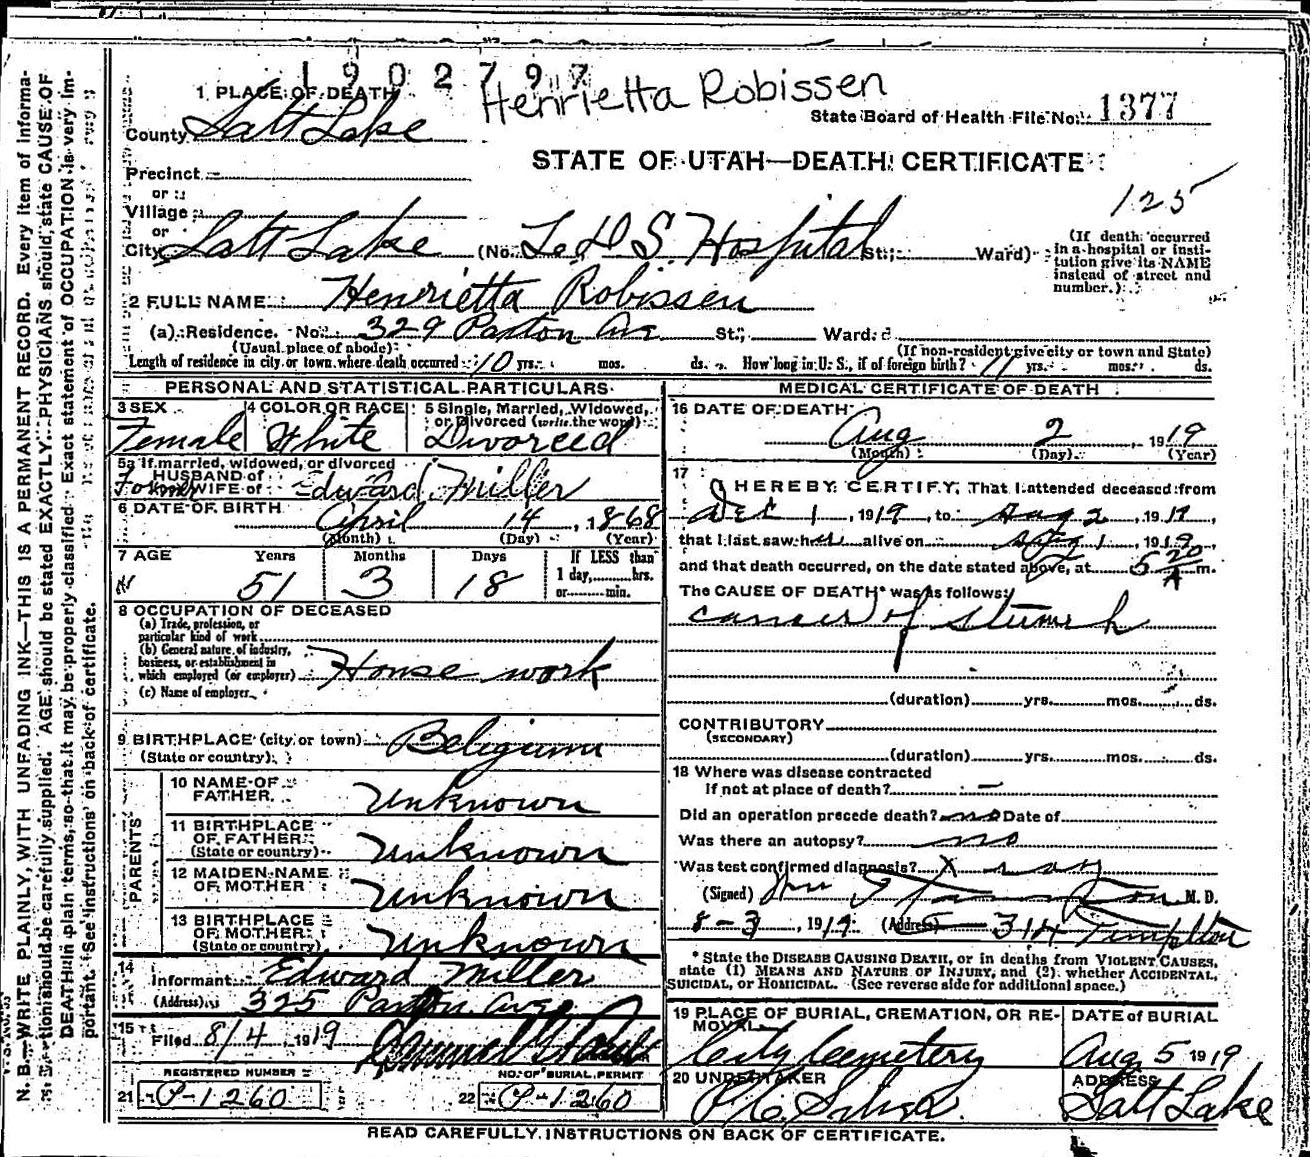 1902797
Henrietta Robissen
1 PLACE OF DEATH
County Salt Lake
State Board of Health File No. 1377
STATE OF UTAH—DEATH CERTIFICATE
Precinct
125
or
Village
or
City Salt Lake (No. L.D.S. Hospital St; Ward)
(If death occurred in a hospital or institution give its NAME instead of street and number.)
2 FULL NAME Henrietta Robissen
(a) Residence. No. 329 Paxton Ave St; Ward.
(Usual place of abode) (If non-resident give city or town and State)
Length of residence in city or town where death occurred 10 yrs. mos. ds. How long in U. S., if of foreign birth? 11 yrs. mos. ds.
PERSONAL AND STATISTICAL PARTICULARS
3 SEX Female
4 COLOR OR RACE White
5 Single, Married, Widowed, or Divorced (write the word) Divorced
5a If married, widowed, or divorced
HUSBAND of
Former WIFE of Edward Miller
6 DATE OF BIRTH April 14, 1868
(Month) (Day) (Year)
7 AGE Years Months Days If LESS than
51 3 18 1 day, hrs.
or min.
8 OCCUPATION OF DECEASED
(a) Trade, profession, or particular kind of work
(b) General nature of industry, business, or establishment in which employed (or employer) House work
(c) Name of employer
9 BIRTHPLACE (city or town) Beligium
(State or country)
PARENTS
10 NAME OF FATHER Unknown
11 BIRTHPLACE OF FATHER (State or country) Unknown
12 MAIDEN NAME OF MOTHER Unknown
13 BIRTHPLACE OF MOTHER (State or country) Unknown
14 Informant Edward Miller
(Address) 325 Paxton Ave
15 Filed 8/4 1919
REGISTERED NUMBER NO. OF BURIAL PERMIT
21 P-1260 22 P-1260
MEDICAL CERTIFICATE OF DEATH
16 DATE OF DEATH
Aug 2, 1919
(Month) (Day) (Year)
17 I HEREBY CERTIFY, That I attended deceased from
Dec 1, 1919, to Aug 2, 1919,
that I last saw her alive on Aug 1, 1919,
and that death occurred, on the date stated above, at 5 20 A m.
The CAUSE OF DEATH* was as follows:
cancer of stomach
(duration) yrs. mos. ds.
CONTRIBUTORY
(SECONDARY)
(duration) yrs. mos. ds.
18 Where was disease contracted
If not at place of death? -
Did an operation precede death? no Date of
Was there an autopsy? no
Was test confirmed diagnosis? X ray
(Signed) M. D.
8-3, 1919 (Address) 314 Templton
* State the DISEASE CAUSING DEATH, or in deaths from VIOLENT CAUSES,
state (1) MEANS AND NATURE OF INJURY, and (2) whether ACCIDENTAL,
SUICIDAL, or HOMICIDAL. (See reverse side for additional space.)
19 PLACE OF BURIAL, CREMATION, OR REMOVAL DATE of BURIAL
City Cemetery Aug 5 1919
20 UNDERTAKER ADDRESS
Salt Lake
READ CAREFULLY INSTRUCTIONS ON BACK OF CERTIFICATE.
N. B.—WRITE PLAINLY, WITH UNFADING INK—THIS IS A PERMANENT RECORD. Every item of information should be carefully supplied. AGE should be stated EXACTLY. PHYSICIANS should state CAUSE OF
DEATH in plain terms, so that it may be properly classified. Exact statement of OCCUPATION is very important. See instructions on back of certificate.